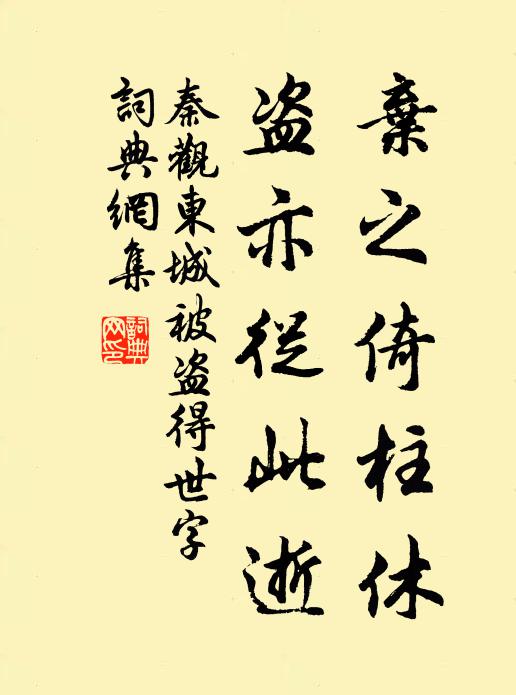 棄之倚柱休
盗亦從此逝
秦觀東城被盗得世字
詞典網集
詞典网印